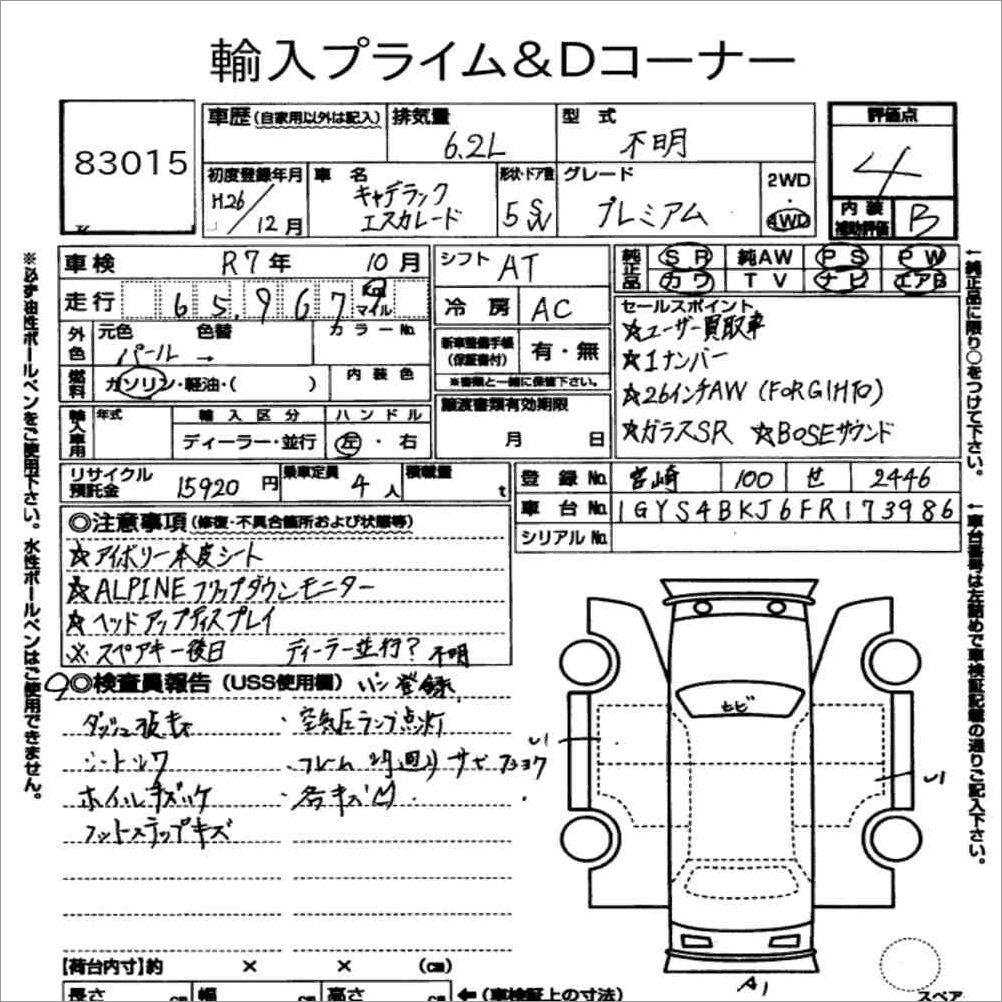 輸入プライム&Dコーナー
83015
車歴 (自家用以外は記入) 排気量 6.2L 型式 不明 評価点 4
初度登録年月 H.26/12月 車名 キャデラック エスカレード 形状・ドア数 5 SW グレード プレミアム 2WD・4WD 内装補助評価 B
車検 R7年 10月 シフト AT 純正品 SR 純AW PS PW
走行 65,967 km マイル 冷房 AC カワ TV ナビ エアB
外色 元色 パール → 色替 カラーNo.
燃料 ガソリン・軽油・( ) 内装色
新車整備手帳 (保証書付) 有・無
※書類と一緒に保管下さい。
セールスポイント
☆ユーザー買取車
☆1ナンバー
☆26インチAW (FORGIHTO)
☆ガラスSR ☆BOSEサウンド
輸入車用 年式 輸入区分 ディーラー・並行 ハンドル 左・右
譲渡書類有効期限 月 日
リサイクル預託金 15920円 乗車定員 4人 積載量 t
登録No. 宮崎 100 せ 2446
車台No. 1GYS4BKJ6FR173986
シリアルNo.
◎注意事項 (修復・不具合箇所および状態等)
☆アイボリー本皮シート
☆ALPINEフリップダウンモニター
☆ヘッドアップディスプレイ
※スペアキー後日 ディーラー並行?不明
◎検査員報告 (USS使用欄) 登録
ダッシュ
・空気圧ランプ点灯
シート
・フレーム 廻り サビ
ホイルキズ
・各キズ凹
フットステップキズ
セビ
U1
U1
A1
スペア
【荷台内寸】約 × × (cm)
長さ cm 幅 cm 高さ cm ←(車検証上の寸法)
※必ず油性ボールペンをご使用下さい。水性ボールペンはご使用できません。
←純正品に限り○をつけて下さい。
←車台番号は左詰めで車検証記載の通りご記入下さい。